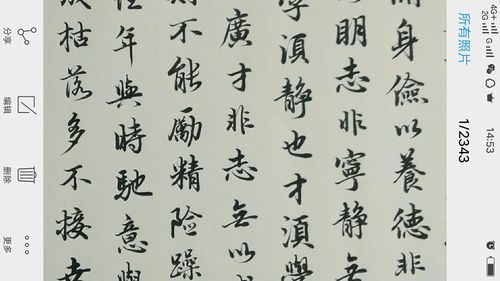 4G+
2G G
14:53
所有照片
1/2343
身儉以養德非
明志非寧靜無
學須靜也才須學
廣才非志無以
則不能勵精險躁
年與時馳意與
枯落多不接
分享
编辑
删除
更多